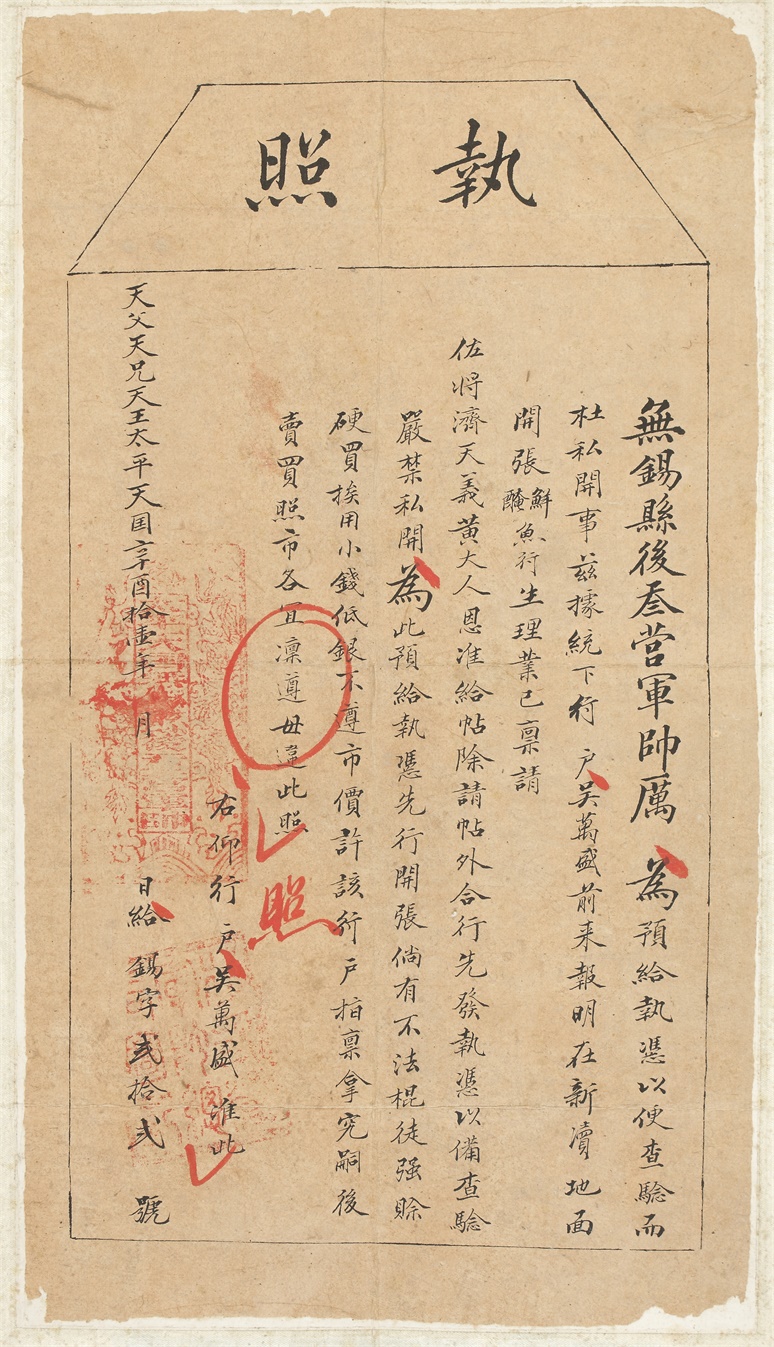 執照
無錫縣後叁營軍帥厲 為預給執憑以便查騐而
杜私開事茲據統下行户吴萬盛前来報明在新瀆地面
開張鮮醃魚行生理業已禀請
佐將濟天義黃大人恩准給帖除請帖外合行先發執憑以備查騐
嚴禁私開為此預給執憑先行開張倘有不法棍徒强賒
硬買挨用小錢低銀不遵市價許該行户指禀拿究嗣後
賣買照市各宜凜遵毋違此照
照
右仰行户吴萬盛准此
天父天兄天王太平天囯辛酉拾壹年 月 日給 錫字貳拾弍 號